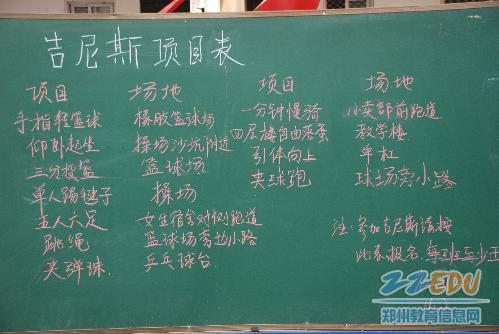 吉尼斯项目表
项目 场地 项目 场地
手指转篮球 橡胶篮球场 一分钟慢骑 小卖部前跑道
仰卧起坐 操场沙坑附近 四层楼自由落蛋 教学楼
三分投篮 篮球场 引体向上 单杠
单人踢毽子 操场 夹球跑 球场旁小路
五人六足 女生宿舍对侧跑道
跳绳 篮球场旁边小路
夹弹珠 乒乓球台
注:参加吉尼斯请按
此表报名,每班至少
ZZEDU
郑州教育信息网